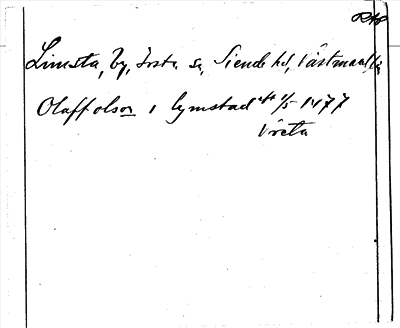 Rap
Limsta, by, Irsta sn, Siende hd, Västmanl. l.
Olaff olson i lymstad aff 1/5 1477
Vreta